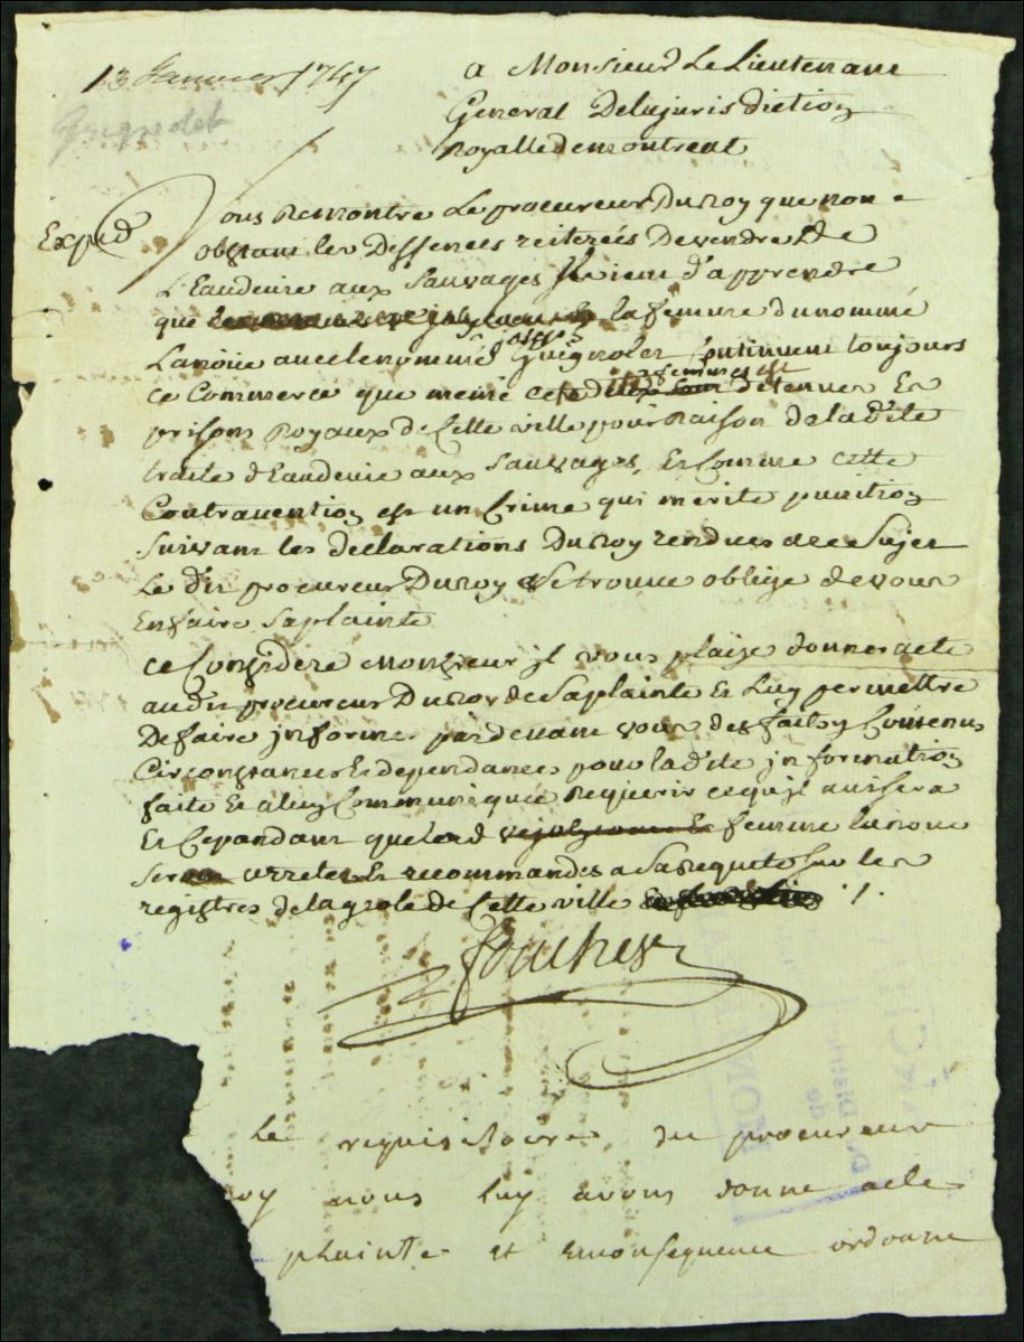 13 Janvier 1747
a Monsieur Le Lieutenant
General Delajurisdiction
Royalle de montreal
Guignolet
Exped
Vous Remontre Le procureur Du Roy que non
obstant les Deffences reiterées De vendre De
L'Eaudevie aux Sauvages Il vient d'apprendre
que la femme du nommé
Lanoüe avec le nommé joseph Guignolet continuent toujours
ce Commerce que meme cette dite femme est detenue Es
prisons Royaux de Cette ville pour Raison de la d'ite
traite d'Eaudevie aux Sauvages, Et Comme cette
Contravention est un Crime qui merite punition
Suivant les declarations Du Roy rendues a ce Sujet
Le d'it procureur Du Roy Se trouve obligé de vous
En faire Sa plainte
Ce Consideré Monsieur jl vous plaise donner acte
aud'it procureur Du Roy de Sa plainte Et Luy permettre
De faire jnformer pardevant vous des faits y Contenus
Circonstances Et dependances pour la d'ite jnformation
faite Et a luy Communiquée Requerir ce qu'jl avisera
Et Cependant que la d femme lanoue
Sera arretée Et recommandée a Sa Requete Sur les
registres de la geole de Cette ville ./.
foucher
Le requisitoire du procureur
oy nous luy avons donné acte
plainte et En consequence ordonne